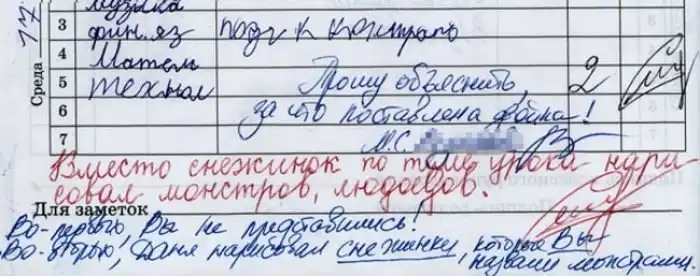 Музыка
17
3 фин. яз подг к контраго
4 Матем
5 технол Прошу объяснить, 2
6 за что поставлена двойка!
7 М.С.
Среда
Вместо снежинок по теме урока нари-
совал монстров, людоедов.
Для заметок
Во-первых, Вы не представились!
Во-вторых, Даня нарисовал снежинки, которые Вы
назвали монстрами.